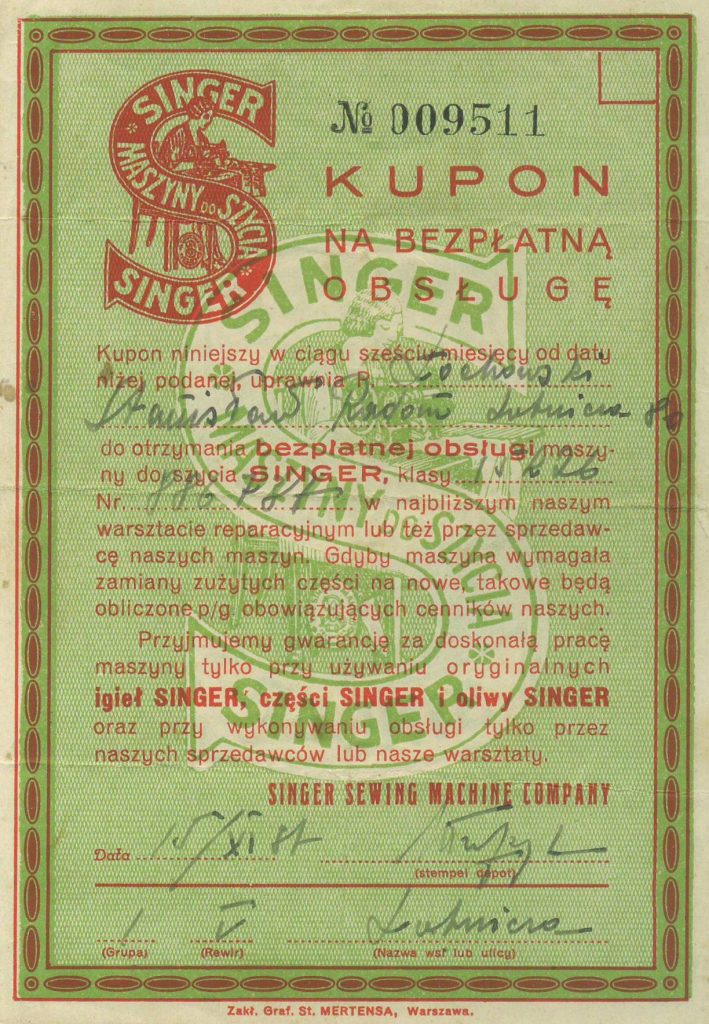 SINGER
MASZYNY DO SZYCIA
SINGER
№ 009511
KUPON
NA BEZPŁATNĄ
OBSŁUGĘ
SINGER
MASZYNY DO SZYCIA
SINGER
Kupon niniejszy w ciągu sześciu miesięcy od daty
niżej podanej, uprawnia P.
Stanisław Radom Lutnicza
do otrzymania bezpłatnej obsługi maszy-
ny do szycia SINGER, klasy
Nr. w najbliższym naszym
warsztacie reparacyjnym lub też przez sprzedaw-
cę naszych maszyn. Gdyby maszyna wymagała
zamiany zużytych części na nowe, takowe będą
obliczone p/g obowiązujących cenników naszych.
Przyjmujemy gwarancję za doskonałą pracę
maszyny tylko przy używaniu oryginalnych
igieł SINGER, części SINGER i oliwy SINGER
oraz przy wykonywaniu obsługi tylko przez
naszych sprzedawców lub nasze warsztaty.
SINGER SEWING MACHINE COMPANY
Data 15/XI
(stempel depot)
I V Lutnicza
(Grupa) (Rewir) (Nazwa wsi lub ulicy)
Zakł. Graf. St. MERTENSA, Warszawa.